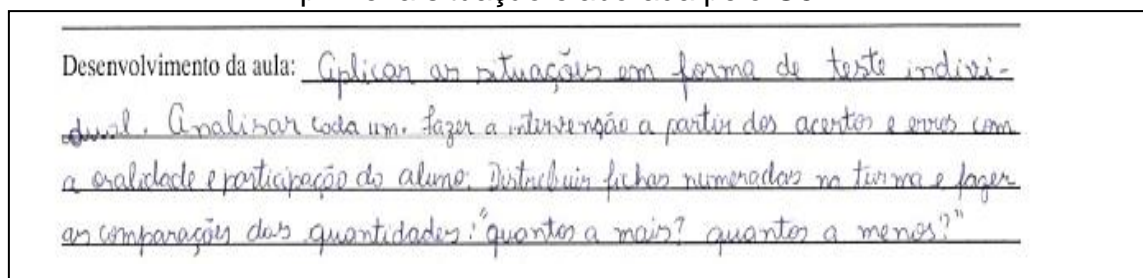 Desenvolvimento da aula: Aplicar as situações em forma de teste indivi-
dual. Analisar cada um. Fazer a intervenção a partir dos acertos e erros com
a oralidade e participação do aluno. Distribuir fichas numeradas na turma e fazer
as comparações das quantidades: "quantos a mais? quantos a menos?"